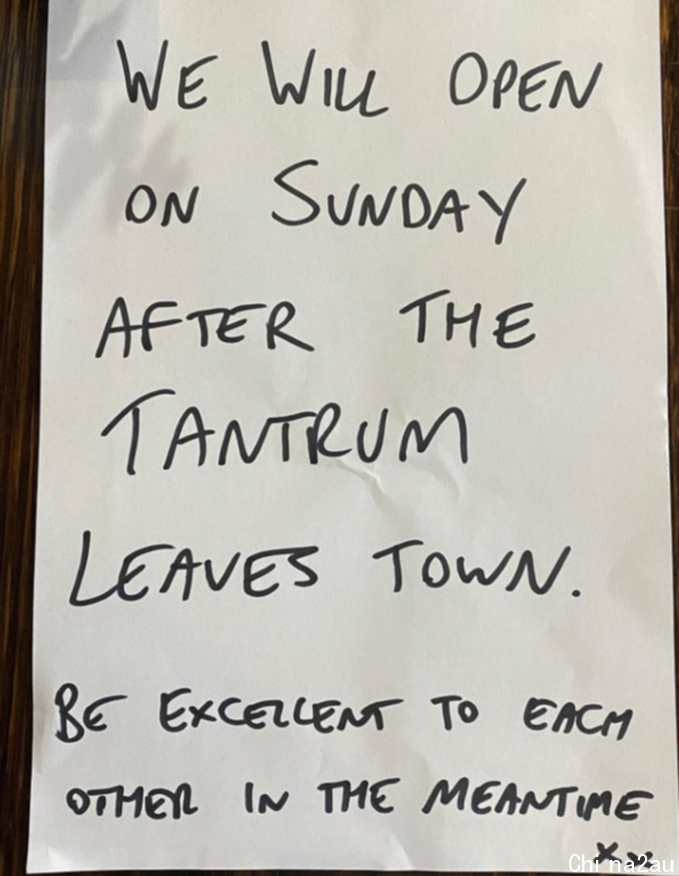 WE WILL OPEN
ON SUNDAY
AFTER THE
TANTRUM
LEAVES TOWN.
BE EXCELLENT TO EACH
OTHER IN THE MEANTIME
Chi na2au